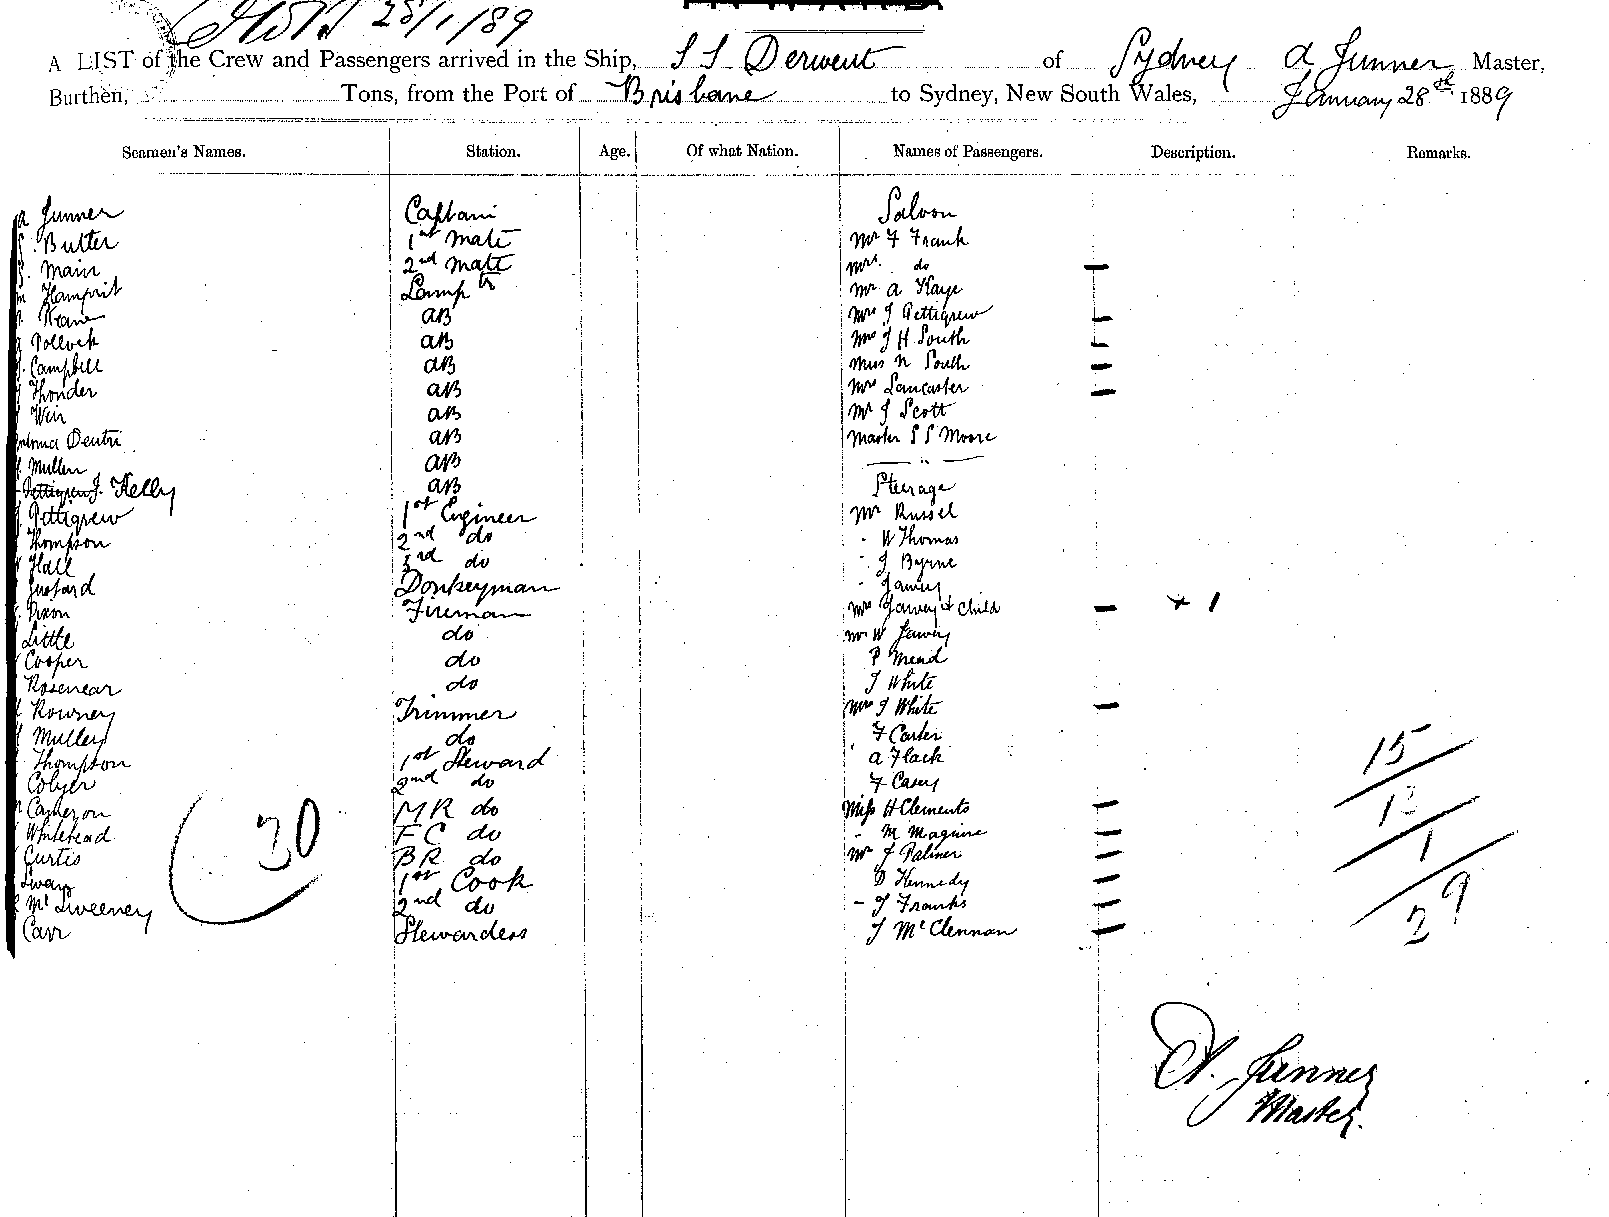 28/1/89
A LIST of the Crew and Passengers arrived in the Ship, S S Derwent of Sydney A Junner Master,
Burthen, Tons, from the Port of Brisbane to Sydney, New South Wales, January 28th 1889
Seamen's Names. Station. Age. Of what Nation. Names of Passengers. Description. Remarks.
A Junner Captain Saloon
Butter 1st Mate Mr F Frank
Main 2nd Mate Mrs. do
Lamp tr Mr A Kaye
Keane AB Mrs J Pettigrew
Pollock AB Mrs J H South
Campbell AB Miss N South
Thonder AB Mrs Lancaster
Weir AB Mr J Scott
AB Master S S Moore
Mullen AB
J. Kelly AB Steerage
Pettigrew 1st Engineer Mr Russel
Thompson 2nd do W Thomas
Hall 3rd do J Byrne
Donkeyman
Dixon Fireman Mrs & Child + 1
Little do Mr W
Cooper do P Mead
Rosenear do J White
Rowney Trimmer Mrs J White
Mulley do F Carter
Thompson 1st Steward A Flack
Colyer 2nd do F Casey
Cameron M R do Miss H Clements
Whitehead F C do M Maguire
Curtis B R do Mr J Palmer
Swan 1st Cook D Kennedy
McSweeney 2nd do J Franks
Carr Stewardess J McClennan
30
15
13
1
29
A. Junner
Master.